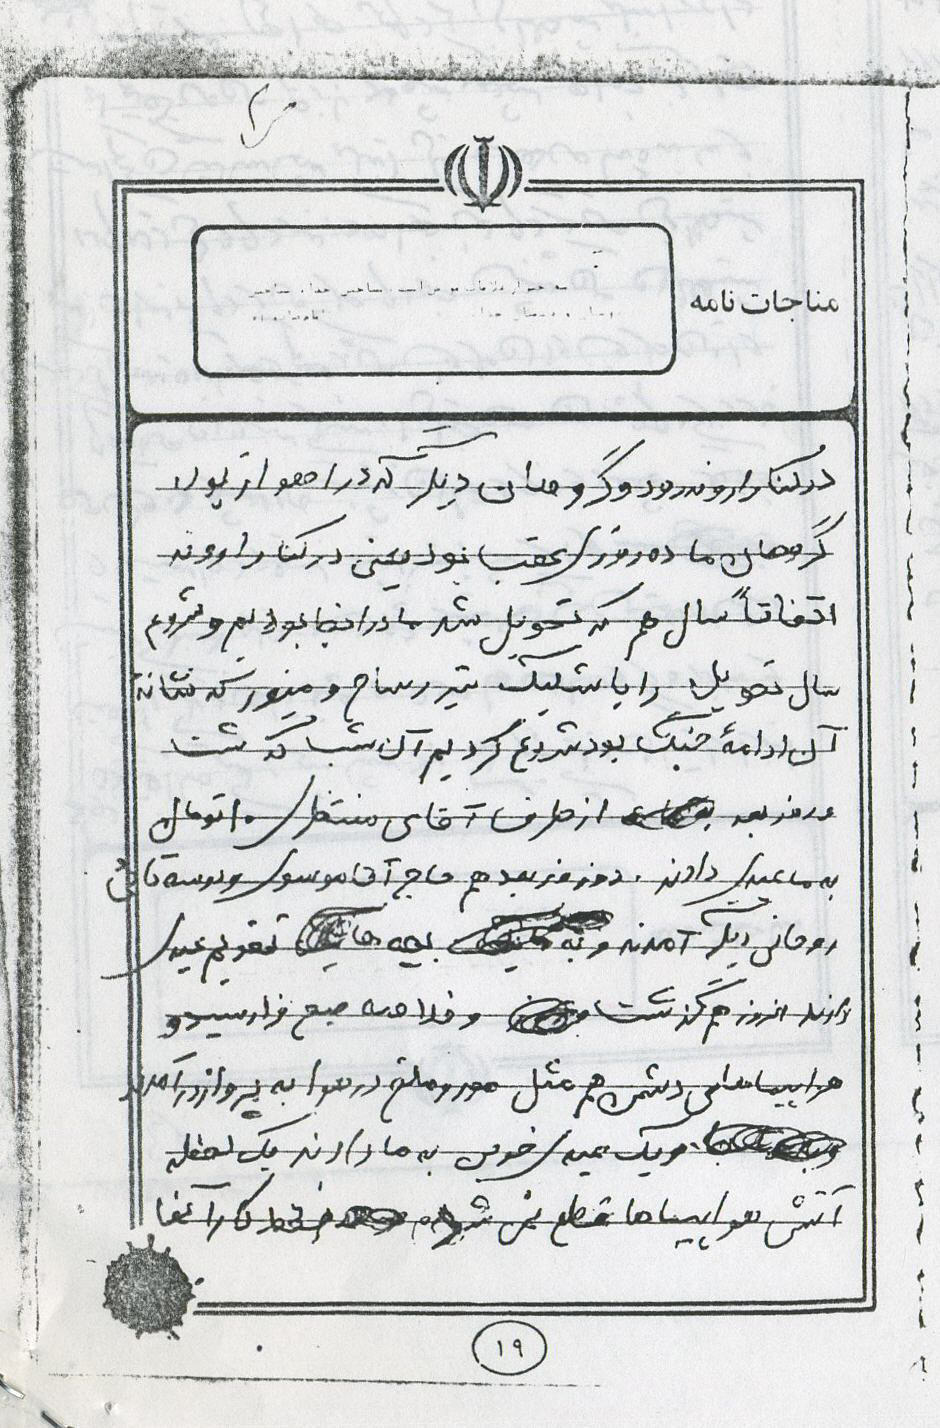 مناجات نامه
در کنار اروند رود و گروهان دیگر که در اهواز بود
گروهان ما ده روزی عقب بود یعنی در کنار اروند
اتفاقاً سال هم که تحویل شد ما در انجا بودیم و شروع
سال تحویل را با شلیک تیر رسام و منور که نشانه
آن ادامهٔ جنگ بود شروع کردیم آن شب گذشت
و روز بعد از طرف آقای منتظری ۱۰ تومان
به ما عیدی دادند. دو روز بعد هم حاج آقا موسوی و دو سه تای
روحانی دیگر آمدند و به بچه ها تقویم عیدی
دادند انروز هم گذشت و فردا صبح فرا رسید و
هواپیماهای دشمن هم مثل مور و ملخ در هوا به پرواز درآمدند
و یک عیدی خوبی به ما دادند یک لحظه
آتش هواپیماها قطع نمی شد کار آنها
۱۹